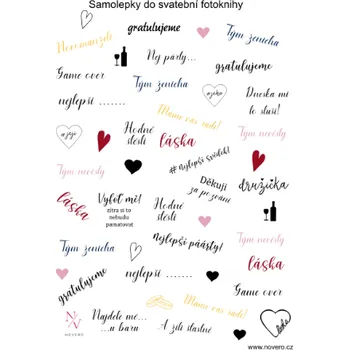 Samolepky do svatební fotoknihy
gratulujeme
Novomanželé
Tým ženicha
Nej párty...
gratulujeme
Game over
ajeho
Dneska mi
to sluší!
nejlepší .......
Máme vás rádi!
a její
Hodně
štěstí
láska
Tým nevěsty
Hodně
štěstí
Tým nevěsty
#nejlepší svědek!
Děkuji
za pozvání
družička
láska
Vyfoť mě!
zítra si to
nebudu
pamatovat
Tým ženicha
nejlepší páárty!
Tým nevěsty
láska
gratulujeme
nejlepší .......
Máme vás rádi!
Game over
N
V
NOVERO
Najdete mě...
u baru
A žili šťastně
láska
www.novero.cz